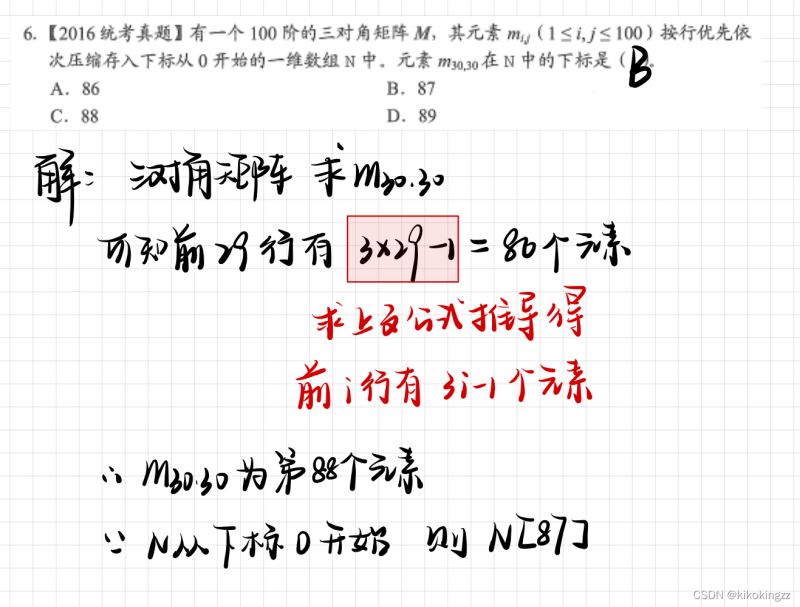 6.【2016 统考真题】有一个 100 阶的三对角矩阵 M，其元素 mi,j（1≤i,j≤100）按行优先依
次压缩存入下标从 0 开始的一维数组 N 中。元素 m30,30 在 N 中的下标是（B）。
A．86 B．87
C．88 D．89
解：三对角矩阵 求M30.30
可知前29行有 3×29-1 = 86个元素
求上面公式推导得
前i行有 3i-1个元素
∴ M30.30为第88个元素
∵ N从下标0开始 则 N[87]
CSDN @kikokingzz